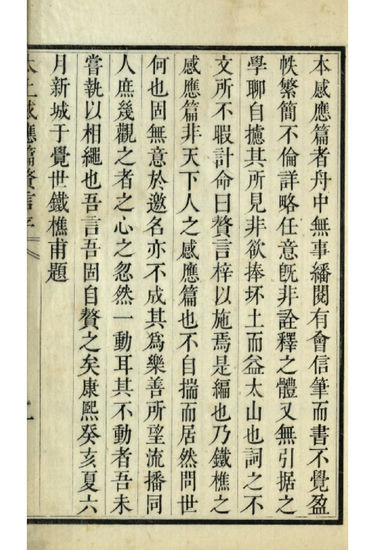 本感應篇者舟中無事繙閱有會信筆而書不覺盈
帙繁簡不倫詳略任意旣非詮釋之體又無引据之
學聊自攄其所見非欲捧坏土而益太山也詞之不
文所不暇計命曰贅言梓以施焉是編也乃鐵樵之
感應篇非天下人之感應篇也不自揣而居然問世
何也固無意於邀名亦不成其爲樂善所望流播同
人庶幾觀之者之心之忽然一動耳其不動者吾未
嘗執以相繩也吾言吾固自贅之矣康熙癸亥夏六
月新城于覺世鐵樵甫題
太上感應篇贅言序